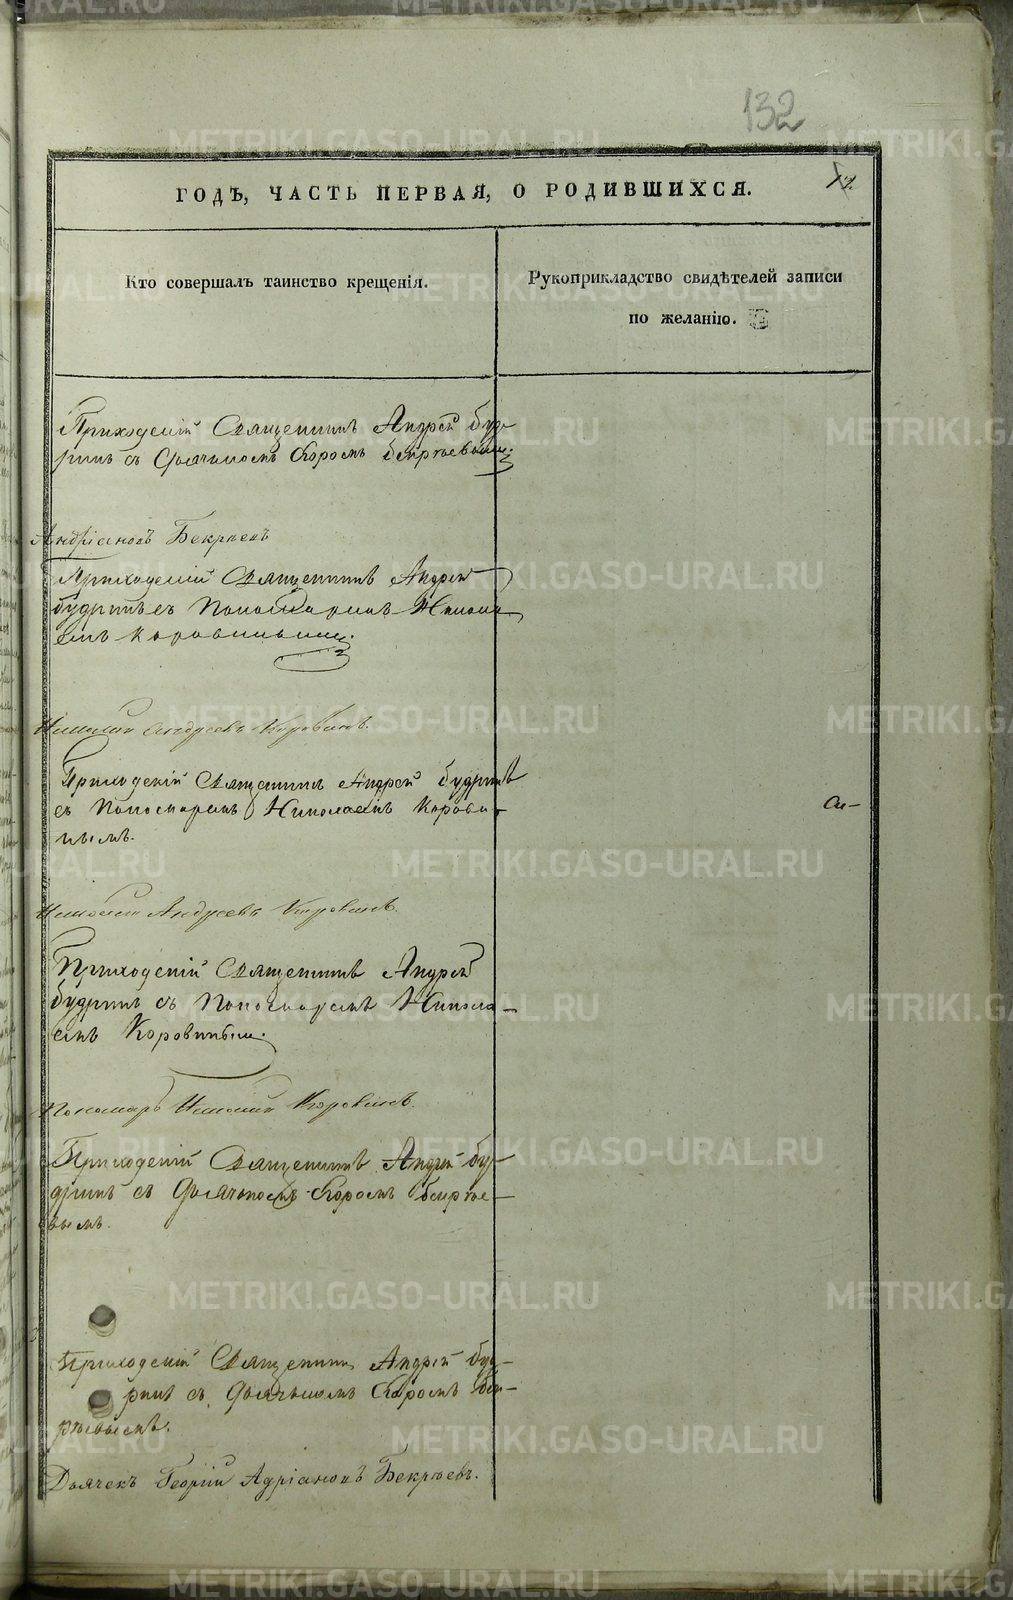 132
ГОДЪ, ЧАСТЬ ПЕРВАЯ, О РОДИВШИХСЯ.
Кто совершалъ таинство крещенія.
Рукоприкладство свидѣтелей записи
по желанію.
Приходскій Священникъ Андрей Буд-
ринъ съ Дьячкомъ
Андріановъ Бекряевъ
Приходскій Священникъ Андрей
Будринъ съ Пономаремъ Никола
емъ Коровинымъ.
Николай Андреевъ Коровинъ.
Приходскій Священникъ Андрей Будринъ
съ Пономаремъ Николаемъ Корови-
нымъ.
Николай Андреевъ Коровинъ.
Приходскій Священникъ Андрей
Будринъ съ Пономаремъ Никола-
емъ Коровинымъ.
Пономарь Николай Коровинъ.
Приходскій Священникъ Андрей Бу-
дринъ съ Дьячкомъ Бекряе-
вымъ.
Приходскій Священникъ Андрей Буд-
ринъ съ Дьячкомъ Бек-
ряевымъ.
Дьячекъ Георгій Адріановъ Бекряевъ.
METRIKI.GASO-URAL.RU